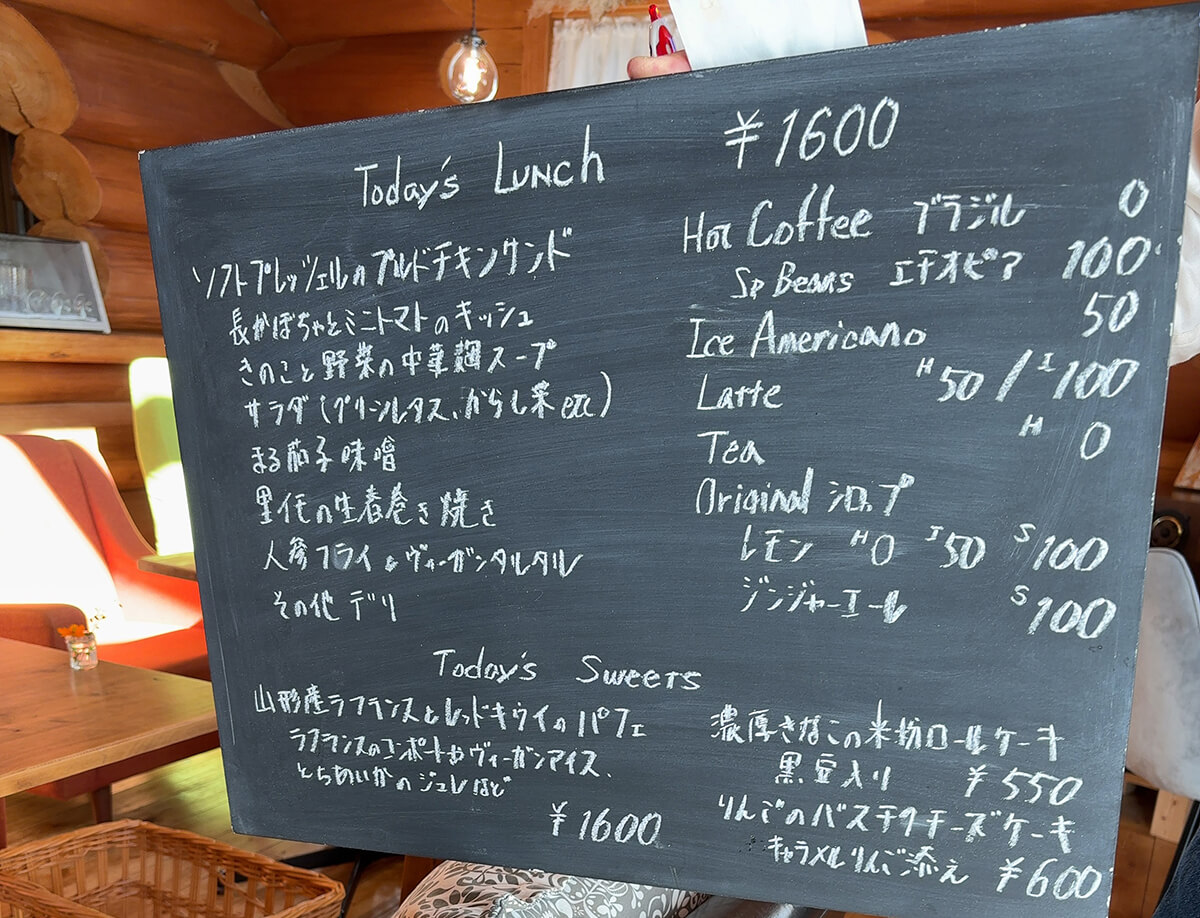 Today's Lunch ¥1600
ソフトプレッツェルのプルドチキンサンド
長かぼちゃとミニトマトのキッシュ
きのこと野菜の中華麹スープ
サラダ(グリーンレタス、からし菜etc)
まる茄子味噌
里芋の生春巻き焼き
人参フライ&ヴィーガンタルタル
その他デリ
Hot Coffee ブラジル 0
Sp Beans エチオピア 100
Ice Americano 50
Latte H50/I100
Tea H 0
Original シロップ
レモン H0 I50 S100
ジンジャーエール S100
Today's Sweets
山形産ラフランスとレッドキウイのパフェ
ラフランスのコンポートやヴィーガンアイス、
とちあいかのジュレなど
¥1600
濃厚きなこの米粉ロールケーキ
黒豆入り ¥550
りんごのバスクチーズケーキ
キャラメルりんご添え ¥600